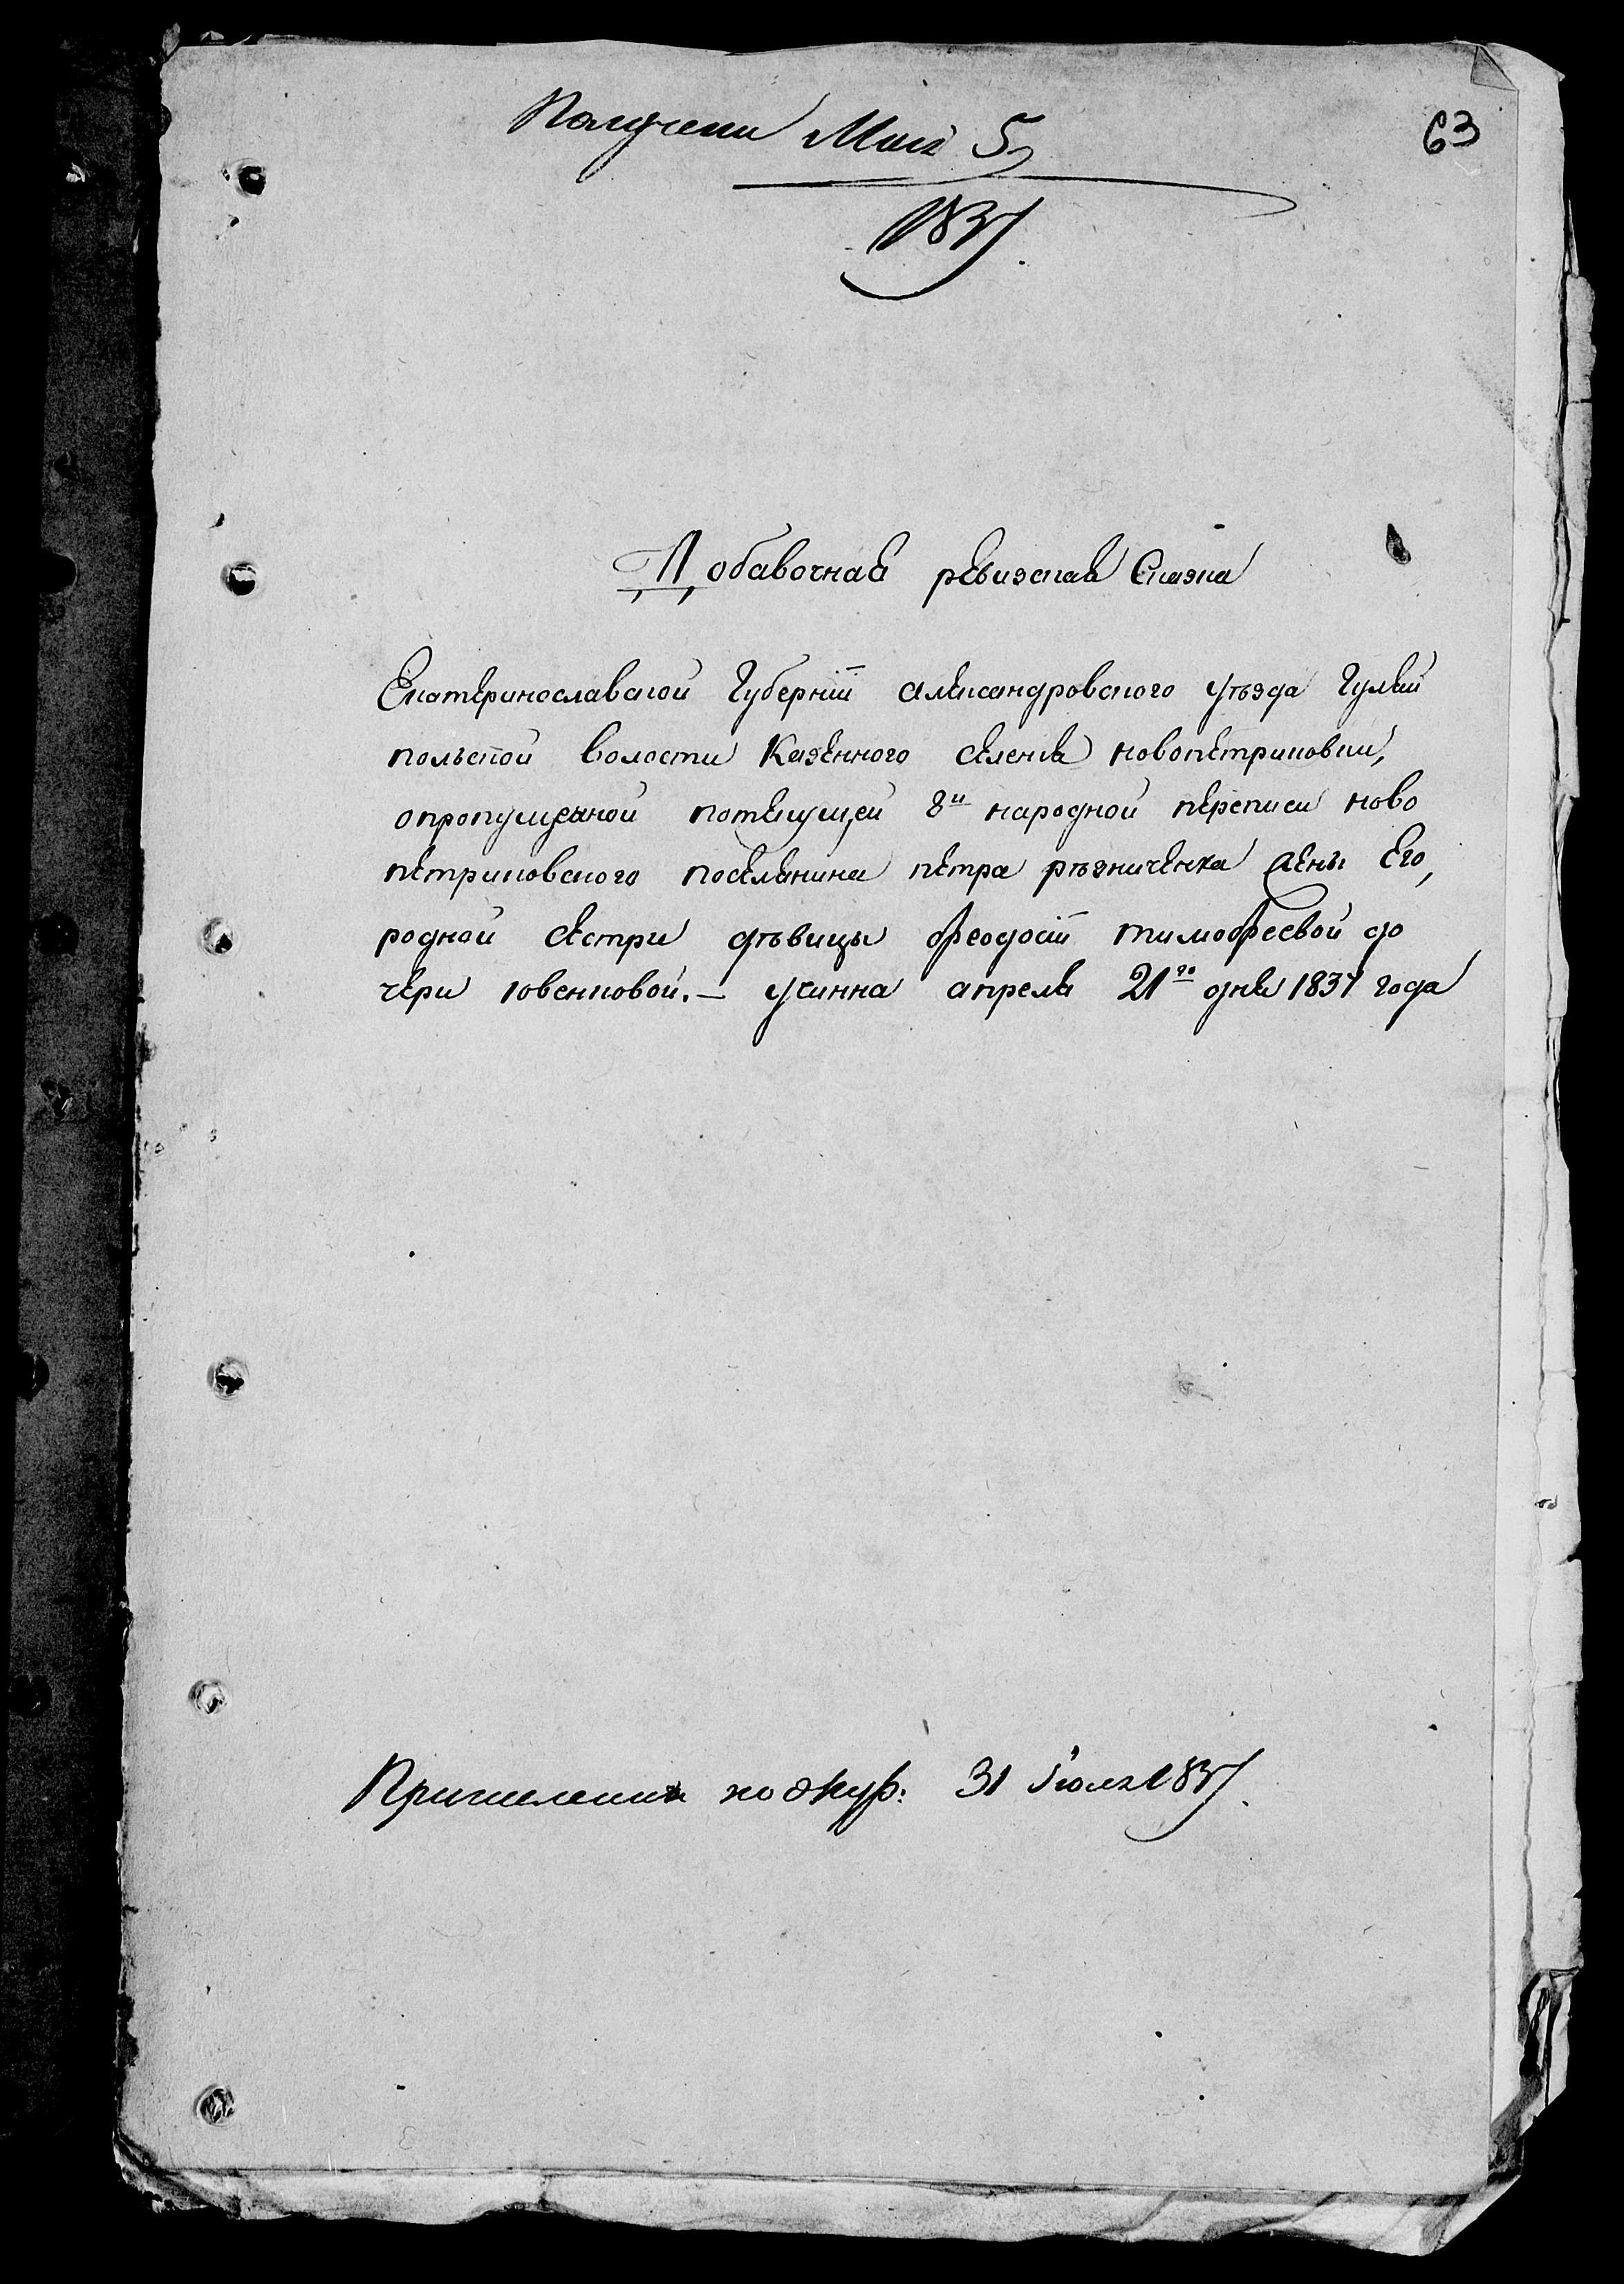 Получена Мая 5
63
1837.
Добавочная ревизская Сказка
Екатеринославской Губерніи александровского уѣзда Гуляй
польской волости Казенного селенія новопетриковки,
опропущенной потекущей 8й народной переписи ново
петриковского поселянина петра рѣзниченка жены Его,
родной сестри дѣвицы феодосіи тимофеевой до
чери ювенковой. — учинна апреля 21го дня 1837 года
Причислена по жур: 31 Іюля 1837.